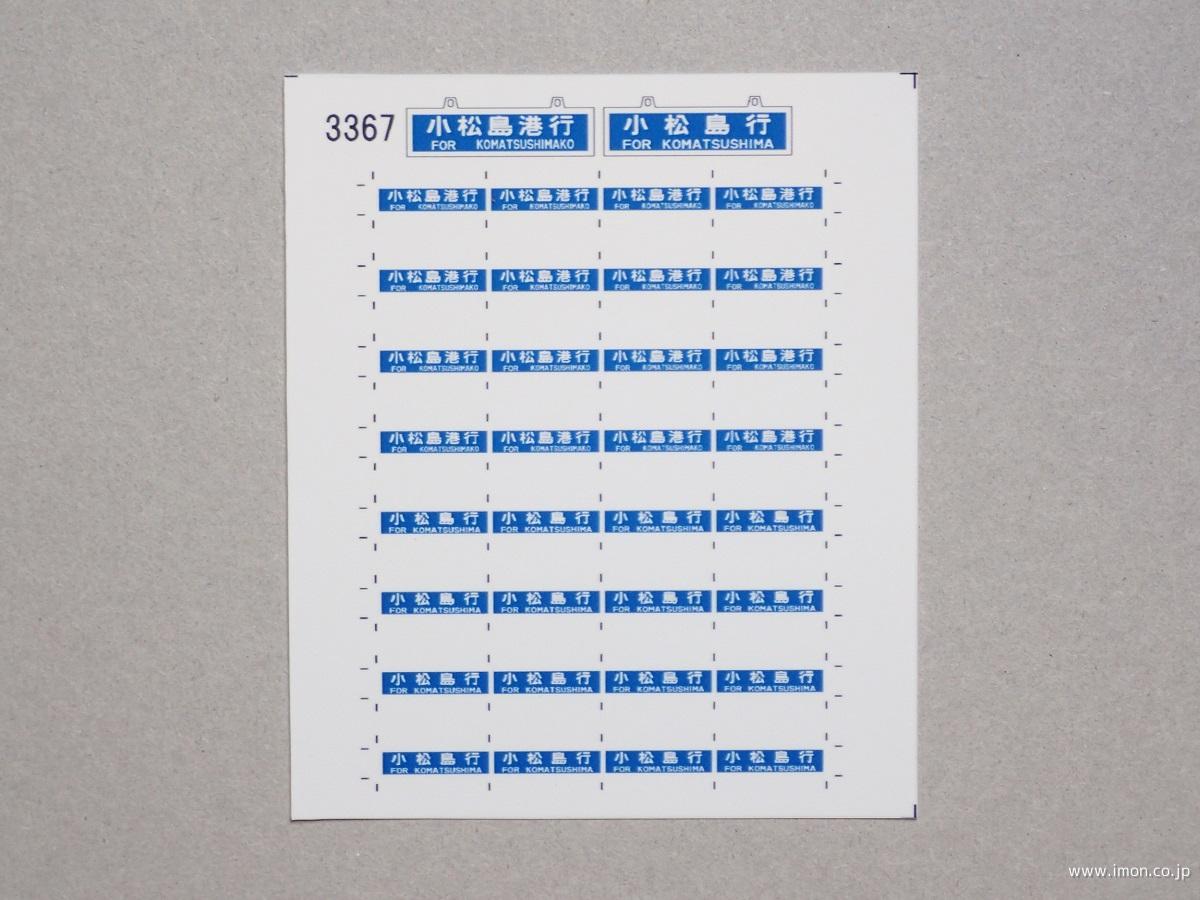 3367
小松島港行 小松島行
FOR KOMATSUSHIMAKO FOR KOMATSUSHIMA
小松島港行 小松島港行 小松島港行 小松島港行
FOR KOMATSUSHIMAKO FOR KOMATSUSHIMAKO FOR KOMATSUSHIMAKO FOR KOMATSUSHIMAKO
小松島港行 小松島港行 小松島港行 小松島港行
FOR KOMATSUSHIMAKO FOR KOMATSUSHIMAKO FOR KOMATSUSHIMAKO FOR KOMATSUSHIMAKO
小松島港行 小松島港行 小松島港行 小松島港行
FOR KOMATSUSHIMAKO FOR KOMATSUSHIMAKO FOR KOMATSUSHIMAKO FOR KOMATSUSHIMAKO
小松島港行 小松島港行 小松島港行 小松島港行
FOR KOMATSUSHIMAKO FOR KOMATSUSHIMAKO FOR KOMATSUSHIMAKO FOR KOMATSUSHIMAKO
小松島行 小松島行 小松島行 小松島行
FOR KOMATSUSHIMA FOR KOMATSUSHIMA FOR KOMATSUSHIMA FOR KOMATSUSHIMA
小松島行 小松島行 小松島行 小松島行
FOR KOMATSUSHIMA FOR KOMATSUSHIMA FOR KOMATSUSHIMA FOR KOMATSUSHIMA
小松島行 小松島行 小松島行 小松島行
FOR KOMATSUSHIMA FOR KOMATSUSHIMA FOR KOMATSUSHIMA FOR KOMATSUSHIMA
小松島行 小松島行 小松島行 小松島行
FOR KOMATSUSHIMA FOR KOMATSUSHIMA FOR KOMATSUSHIMA FOR KOMATSUSHIMA
www.imon.co.jp